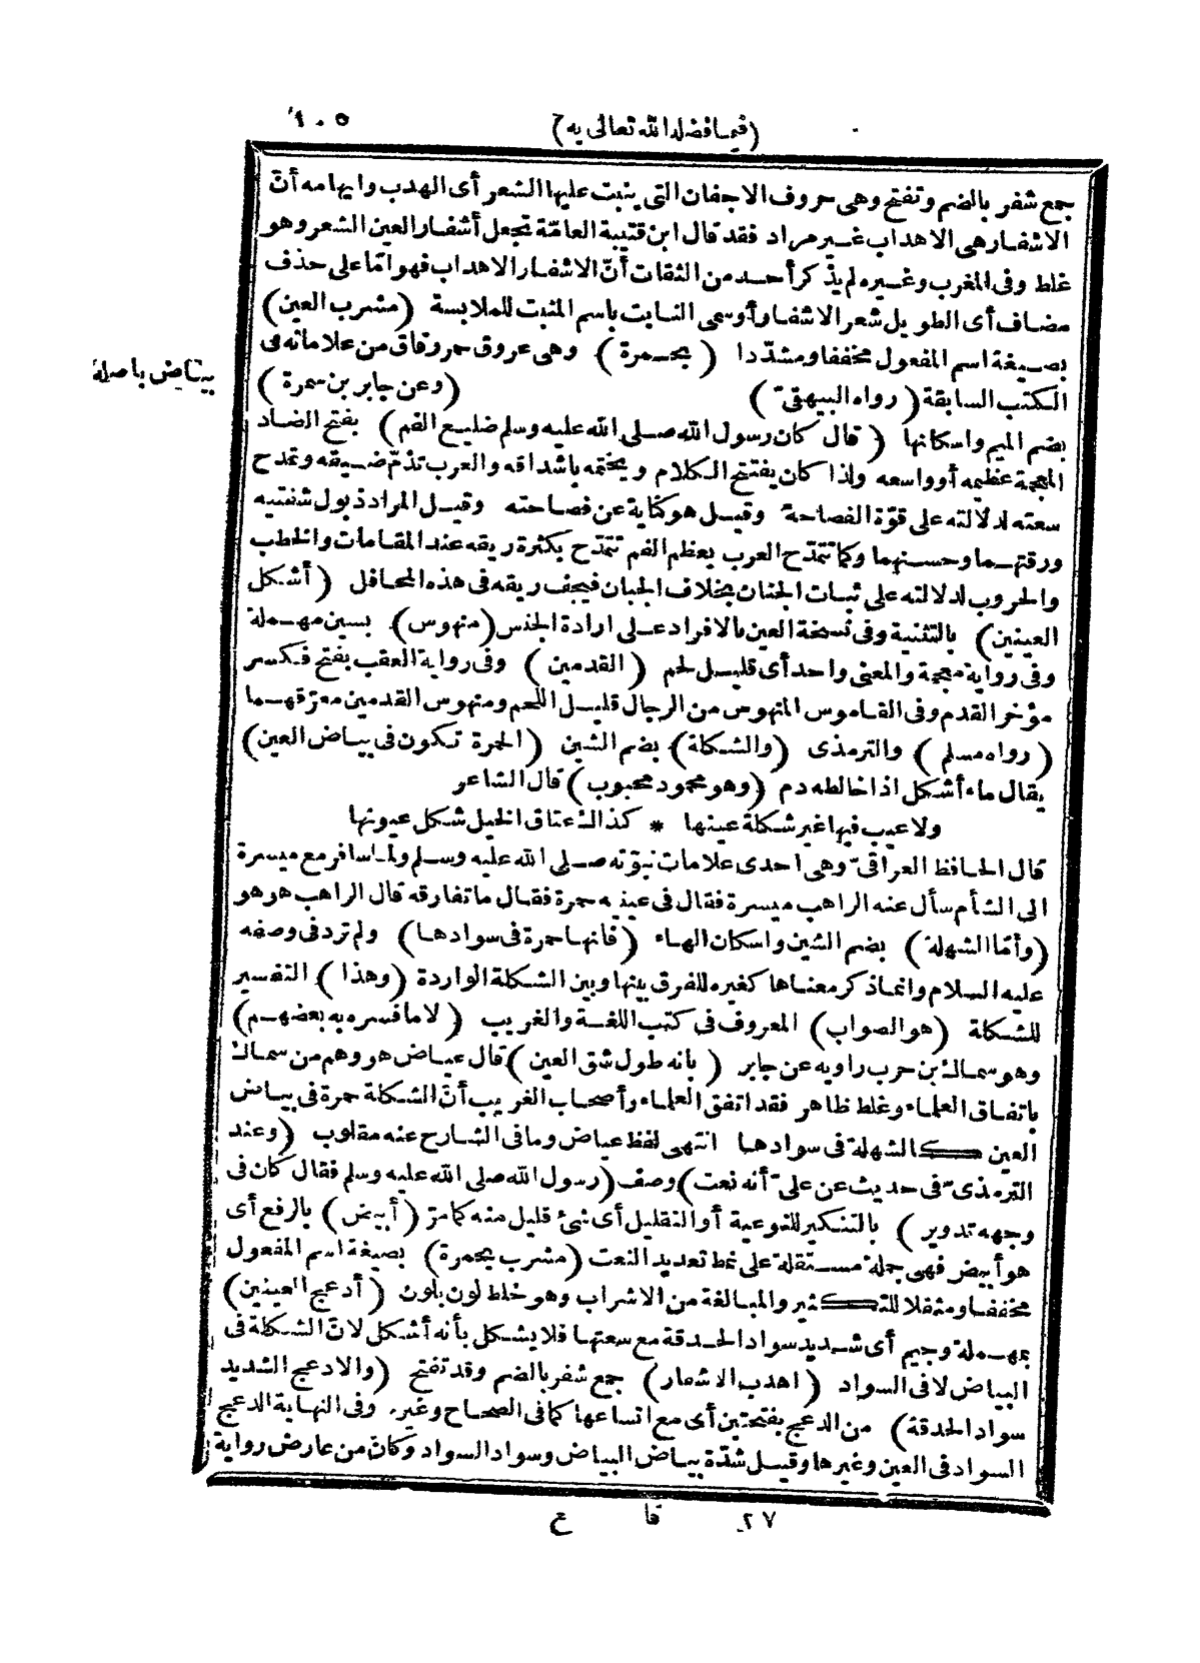 (فيما فضله الله تعالى به)
١٠٥
جمع شفر بالضم وتفتح وهى حروف الاجفان التى ينبت عليها الشعر أى الهدب وايهامه أنّ
الاشفار هى الاهداب غير مراد فقد قال ابن قتيبة العامّة تجعل أشفار العين الشعر وهو
غلط وفى المغرب وغيره لم يذكر أحد من الثقات أنّ الاشفار الاهداب فهو امّا على حذف
مضاف أى الطويل شعر الاشفار أو سمى النابت باسم المنبت للملابسة (مشرب العين)
بصيغة اسم المفعول مخففا ومشدّدا (بحمرة) وهى عروق حمر رقاق من علاماته فى
الكتب السابقة (رواه البيهقىّ) (وعن جابر بن سمرة)
بياض باصله
بضم الميم واسكانها (قال كان رسول الله صلى الله عليه وسلم ضليع الفم) بفتح الضاد
المعجمة عظيمه أو واسعه ولذا كان يفتتح الكلام ويختمه بأشداقه والعرب تذمّ ضيقه وتمدح
سعته لدلالته على قوّة الفصاحة وقيل هو كناية عن فصاحته وقيل المراد ذبول شفتيه
ورقتهما وحسنهما وكما تتمدّح العرب بعظم الفم تتمدّح بكثرة ريقه عند المقامات والخطب
والحروب لدلالته على ثبات الجنان بخلاف الجبان فيجف ريقه فى هذه المحافل (أشكل
العينين) بالتثنية وفى نسخة العين بالافراد على ارادة الجنس (منهوس) بسين مهملة
وفى رواية معجمة والمعنى واحد أى قليل لحم (القدمين) وفى رواية العقب بفتح فكسر
مؤخر القدم وفى القاموس المنهوس من الرجال قليل اللحم ومنهوس القدمين معرّقهما
(رواه مسلم) والترمذى (والشكلة) بضم الشين (الحمرة تكون فى بياض العين)
يقال ماء أشكل اذا خالطه دم (وهو محمود محبوب) قال الشاعر
ولا عيب فيها غير شكلة عينها * كذاك عتاق الخيل شكل عيونها
قال الحافظ العراقىّ وهى احدى علامات نبوّته صلى الله عليه وسلم ولما سافر مع ميسرة
الى الشأم سأل عنه الراهب ميسرة فقال فى عينيه حمرة فقال ما تفارقه قال الراهب هو هو
(وأمّا الشهلة) بضم الشين واسكان الهاء (فانها حمرة فى سوادها) ولم ترد فى وصفه
عليه السلام وانما ذكر معناها كغيره للفرق بينها وبين الشكلة الواردة (وهذا) التفسير
للشكلة (هو الصواب) المعروف فى كتب اللغة والغريب (لا ما فسره به بعضهم)
وهو سماك بن حرب راويه عن جابر (بأنه طول شق العين) قال عياض هو وهم من سماك
باتفاق العلماء وغلط ظاهر فقد اتفق العلماء وأصحاب الغريب أنّ الشكلة حمرة فى بياض
العين كالشهلة فى سوادها انتهى لفظ عياض وما فى الشارح عنه مقلوب (وعند
الترمذىّ فى حديث عن علىّ أنه نعت) وصف (رسول الله صلى الله عليه وسلم فقال كان فى
وجهه تدوير) بالتنكير للنوعية أو التقليل أى شئ قليل منه كما مرّ (أبيض) بالرفع أى
هو أبيض فهى جملة مستقلة على نمط تعديد النعت (مشرب بحمرة) بصيغة اسم المفعول
مخففا ومثقلا للتكثير والمبالغة من الاشراب وهو خلط لون بلون (أدعج العينين)
بمهملة وجيم أى شديد سواد الحدقة مع سعتها فلا يشكل بأنه أشكل لانّ الشكلة فى
البياض لا فى السواد (اهدب الاشفار) جمع شفر بالضم وقد تفتح (والادعج الشديد
سواد الحدقة) من الدعج بفتحتين أى مع اتساعها كما فى الصحاح وغيره وفى النهاية الدعج
السواد فى العين وغيرها وقيل شدّة بياض البياض وسواد السواد وكان من عارض رواية
٢٧ قا ع